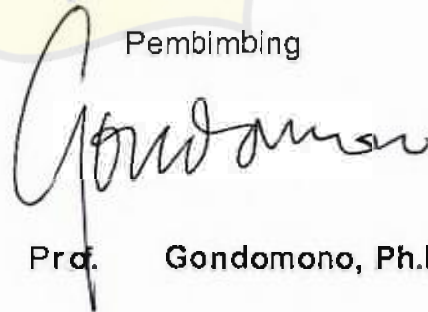 Pembimbing
Gondomono
Prof. Gondomono, Ph.